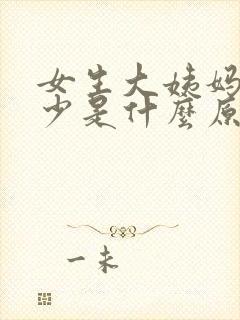 女生大姨妈
少是什麼原
一未